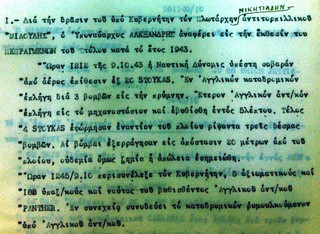 ΝΙΚΗΤΙΑΔΗΝ
Ι.- Διά τήν δρᾶσιν τοῦ ὑπό Κυβερνήτην τόν Πλωτάρχην ἀντιτορπιλλικοῦ
"ΜΙΑΟΥΛΗΣ", ὁ Ὑποναύαρχος ΑΛΕΞΑΝΔΡΗΣ ἀναφέρει είς τήν ἔκθεσιν τοῦ
ΠΕΠΡΑΓΜΕΝΩΝ τοῦ Στόλου κατά τό ἔτος 1943.
""Ὥραν 1212 τῆς 9.10.43 ἡ Ναυτική Δύναμις ὑπέστη σοβαράν
ἀπό ἀέρος ἐπίθεσιν ἐξ 20 STUKAS. Ἕν Ἀγγλικόν καταδρομικόν
ἐπλήγη διά 3 βομβῶν είς τήν πρύμνην. Ἕτερον Ἀγγλικόν ἀντ/κόν
ἐπλήγη είς τό μηχανοστάσιον καί ἐβυθίσθη ἐντός 5λέπτου. Τέλος
4 STUKAS ἐφώρμησαν ἐναντίον τοῦ πλοίου ρίψαντα τρεῖς δέσμας
βομβῶν. Αἱ βόμβαι ἐξερράγησαν είς ἀπόστασιν 20 μέτρων ἀπό τοῦ
πλοίου, οὐδεμία ὅμως ζημία ἤ ἀπώλεια ἐσημειώθη.
""Ὥραν 1245/9.10 περισυνέλεξε τόν Κυβερνήτην, 6 ἀξιωματικούς καί
ὑπαξ/κούς καί ναύτας τοῦ βυθισθέντος Ἀγγλικοῦ ἀντ/κοῦ
PANTHER. Ἐν συνεχείᾳ συνοδεύει τό καταδρομικόν ρυμουλκούμενον
ὑπό Ἀγγλικοῦ ἀντ/κοῦ.